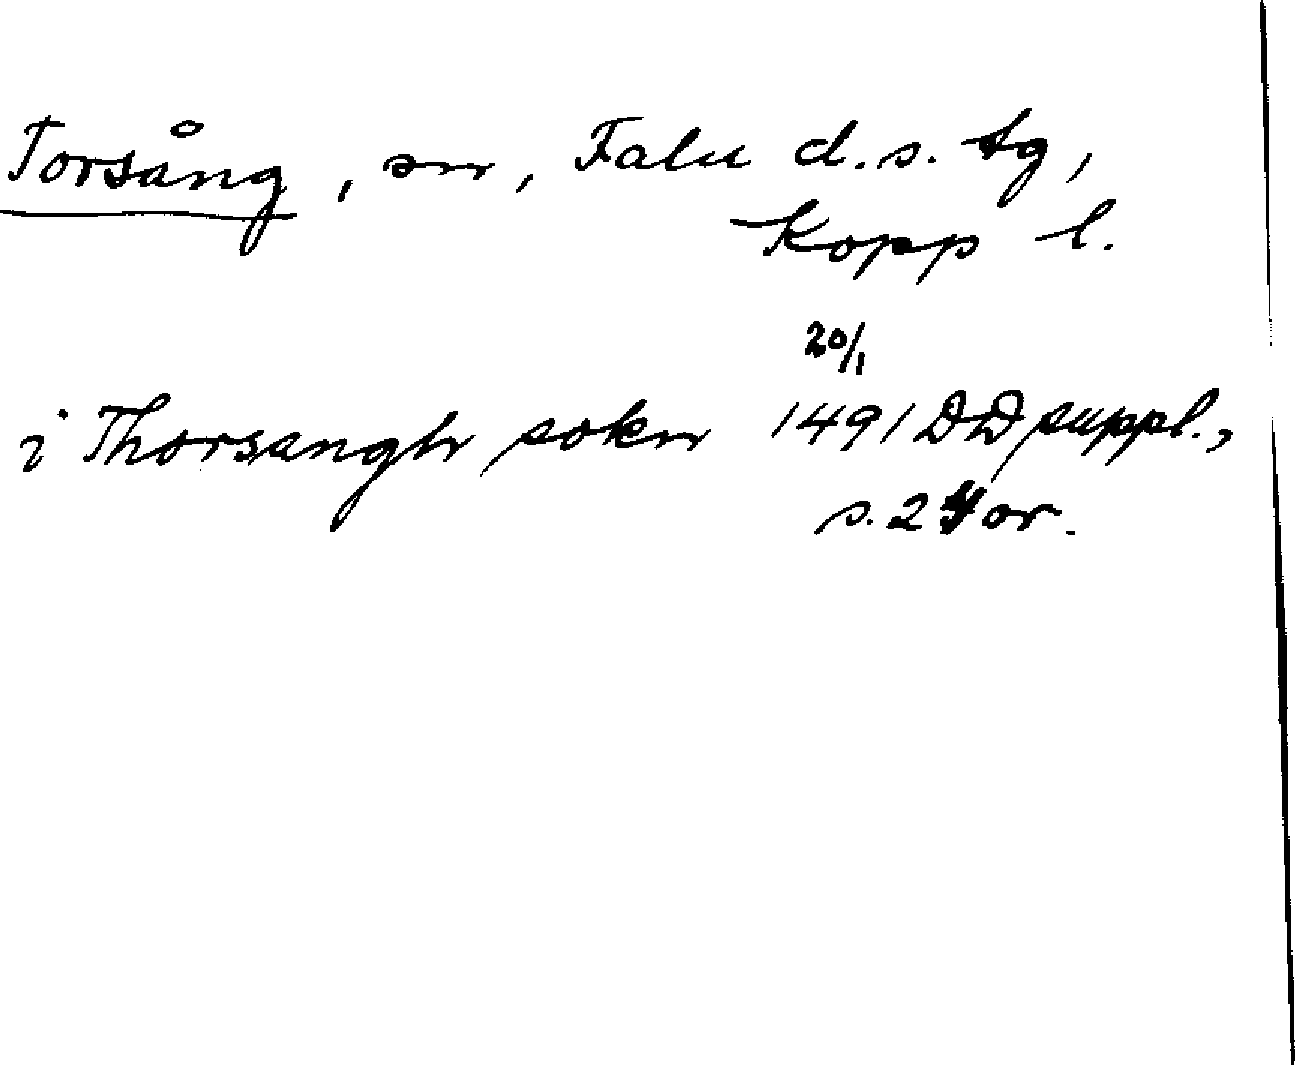 Torsång, sn, Falu d.s. tg,
Kopp l.
20/1
i Thorsangh sokn 1491 DD suppl.,
s. 24 or.